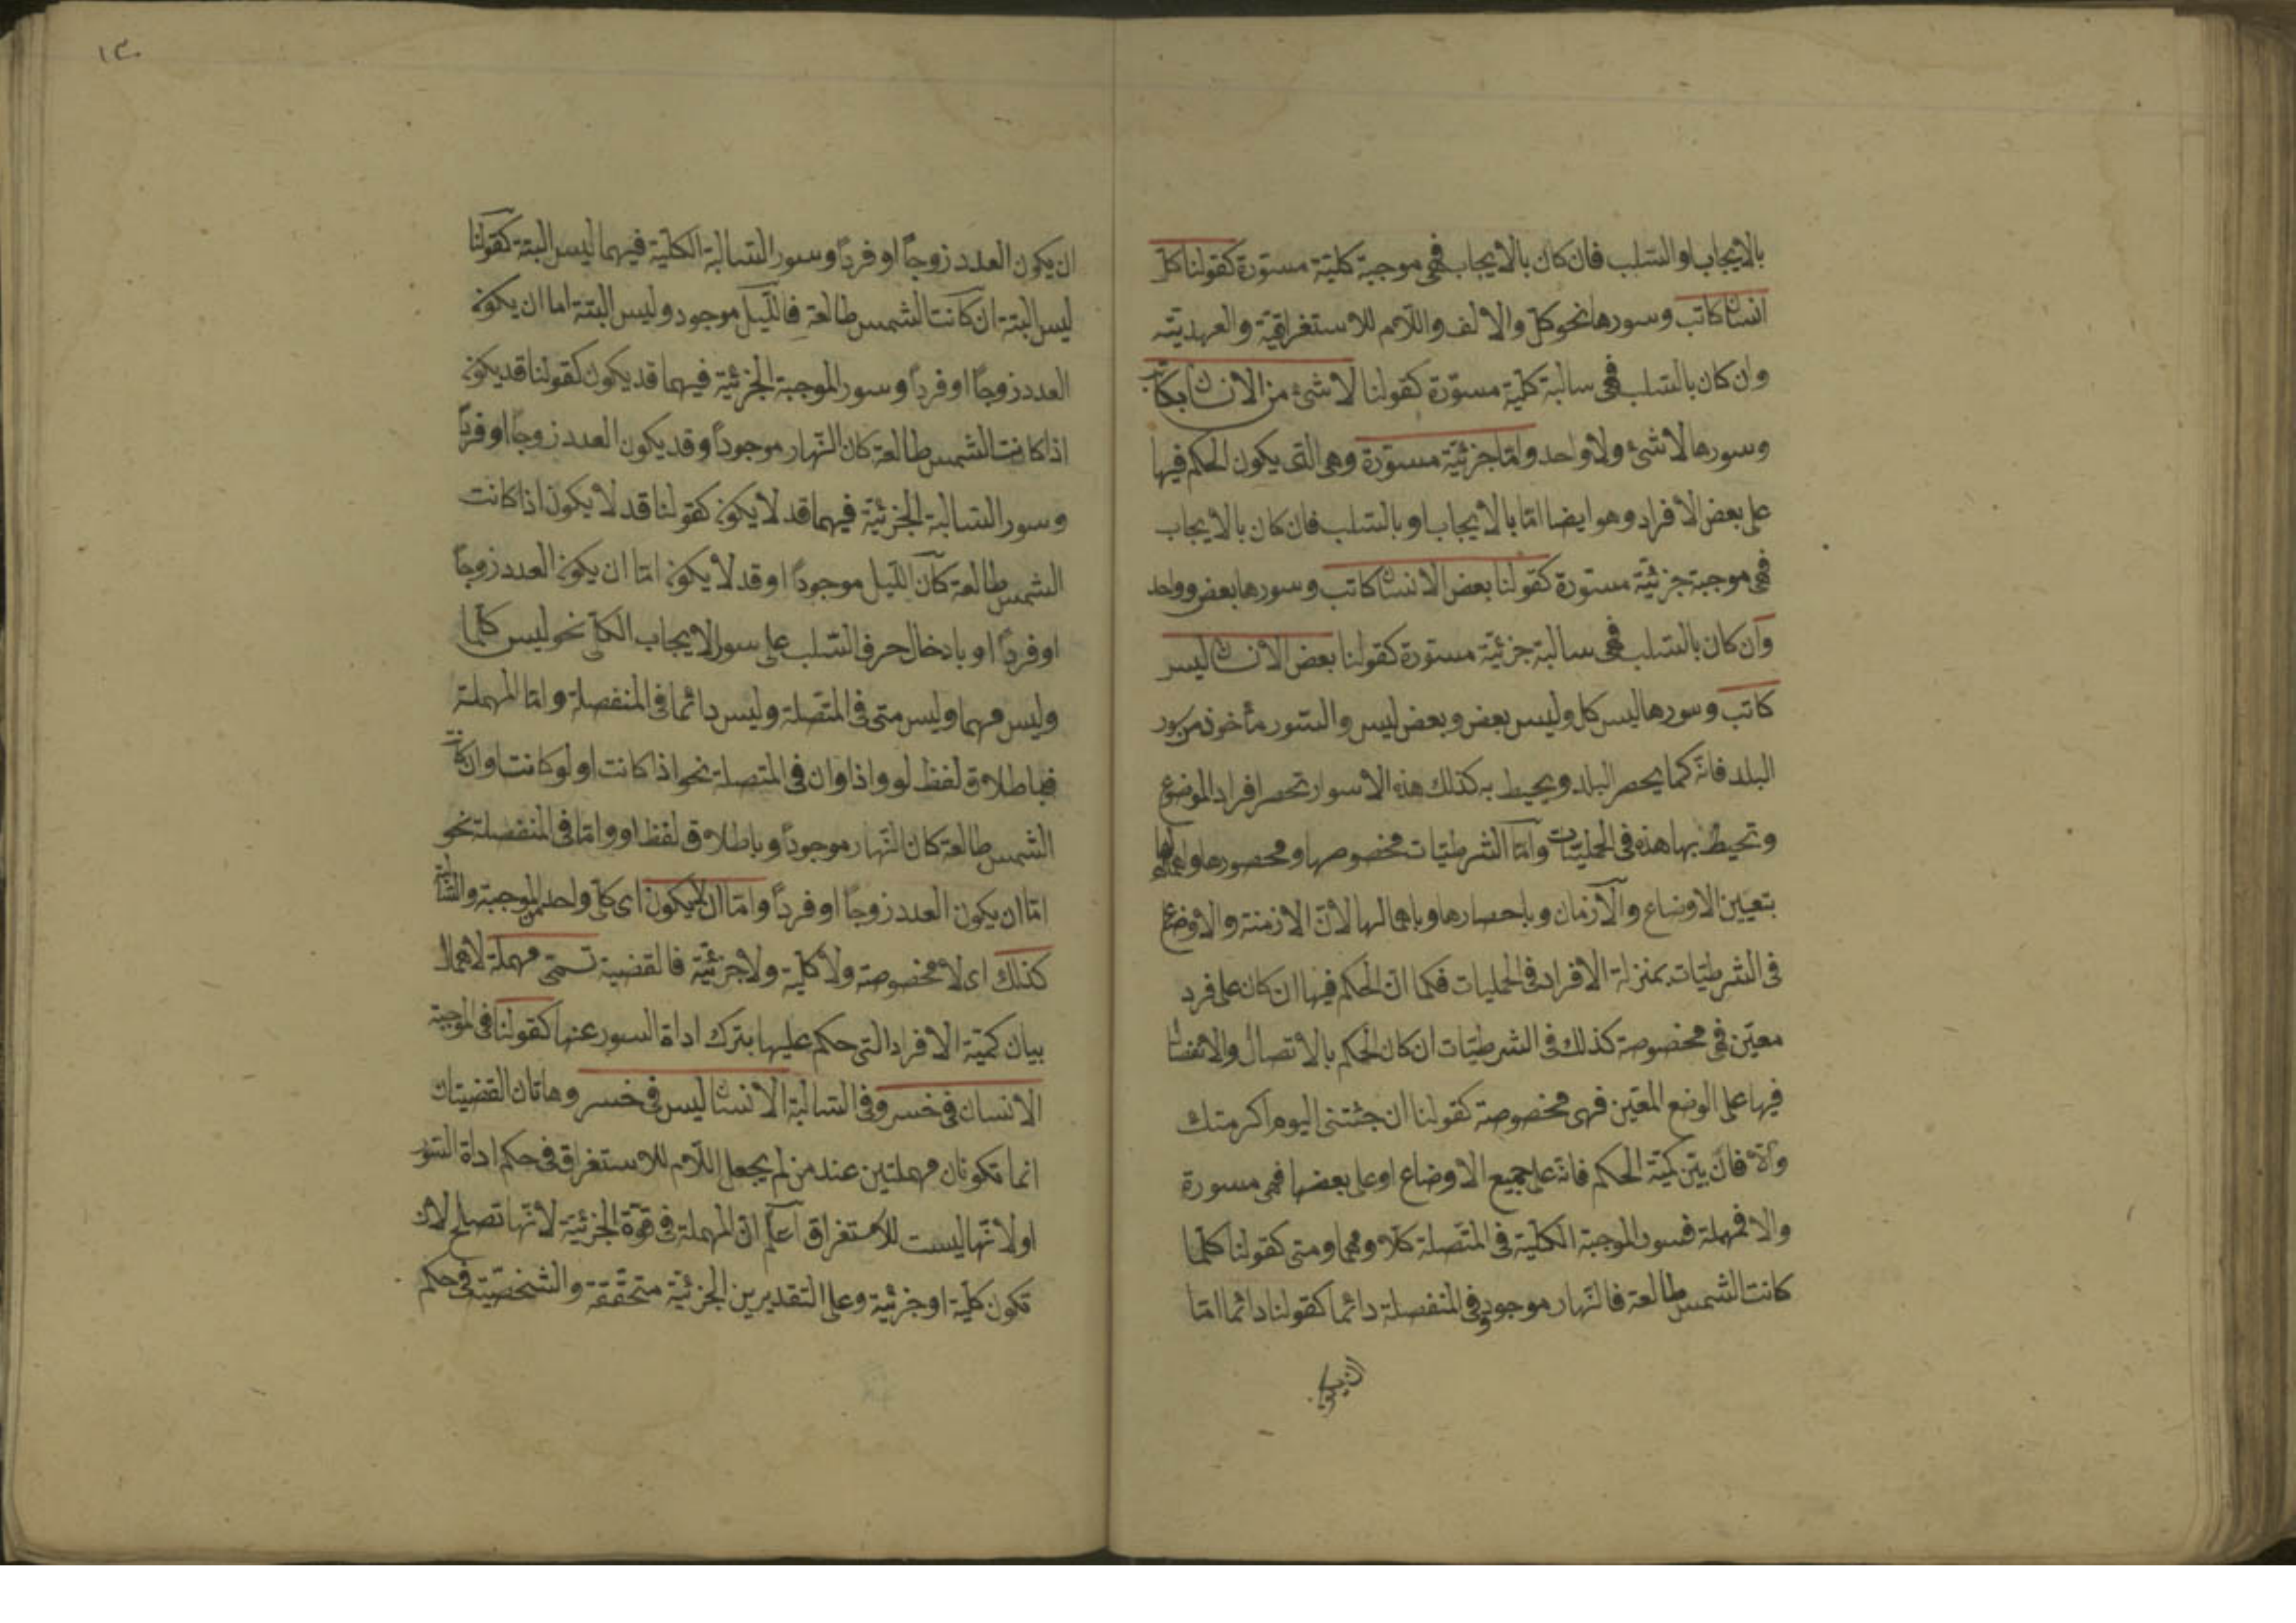 بالايجاب او السلب فان كان بالايجاب فهى موجبة كلية مسورة كقولنا كل
انسان كاتب وسورها نحو كل والالف واللام للاستغراقية والعهدية
وان كان بالسلب فهى سالبة كلية مسورة كقولنا لا شئ من الانسان بكاتب
وسورها لا شئ ولا واحد واما جزئية مسورة وهى التى يكون الحكم فيها
على بعض الافراد وهو ايضا اما بالايجاب او بالسلب فان كان بالايجاب
فهى موجبة جزئية مسورة كقولنا بعض الانسان كاتب وسورها بعض وواحد
وان كان بالسلب فهى سالبة جزئية مسورة كقولنا بعض الانسان ليس
كاتب وسورها ليس كل وليس بعض وبعض ليس والسور مأخوذ من سور
البلد فانه كما يحصر البلد ويحيط به كذلك هذه الاسوار تحصر افراد الموضوع
وتحيط بها هذه فى الحمليات واما الشرطيات فخصوصها ومحصورها واهمالها
بتعيين الاوضاع والازمان وباحصارها وباهمالها لان الازمنة والاوضاع
فى الشرطيات بمنزلة الافراد فى الحمليات فكما ان الحكم فيها ان كان على فرد
معين فهى مخصوصة كذلك فى الشرطيات ان كان الحكم بالاتصال والانفصال
فيها على الوضع المعين فهى مخصوصة كقولنا ان جئتنى اليوم اكرمتك
والا فان بين كمية الحكم فانه على جميع الاوضاع او على بعضها فهى مسورة
والا فمهملة فسور الموجبة الكلية فى المتصلة كلما ومهما ومتى كقولنا كلما
كانت الشمس طالعة فالنهار موجود وفى المنفصلة دائما كقولنا دائما اما
ان يكون
١٣٠
ان يكون العدد زوجاً او فرداً وسور السالبة الكلية فيهما ليس البتة كقولنا
ليس البتة ان كانت الشمس طالعة فالليل موجود وليس البتة اما ان يكون
العدد زوجاً او فرداً وسور الموجبة الجزئية فيهما قد يكون كقولنا قد يكون
اذا كانت الشمس طالعة كان النهار موجوداً وقد يكون العدد زوجاً او فرداً
وسور السالبة الجزئية فيهما قد لا يكون كقولنا قد لا يكون اذا كانت
الشمس طالعة كان الليل موجوداً او قد لا يكون اما ان يكون العدد زوجاً
او فرداً او بادخال حرف السلب على سور الايجاب الكلى نحو ليس كلما
وليس مهما وليس متى فى المتصلة وليس دائما فى المنفصلة واما المهملة
فباطلاق لفظ لو واذا وان فى المتصلة نحو اذا كانت او لو كانت او ان كانت
الشمس طالعة كان النهار موجوداً وباطلاق لفظ او واما فى المنفصلة نحو
اما ان يكون العدد زوجاً او فرداً واما ان لا يكون اى كل واحد من الموجبة والسالبة
كذلك اى لا مخصوصة ولا كلية ولا جزئية فالقضية تسمى مهملة لاهمال
بيان كمية الافراد التى حكم عليها بترك اداة السور عنها كقولنا فى الموجبة
الانسان فى خسر وفى السالبة الانسان ليس فى خسر وهاتان القضيتان
انما تكونان مهملتين عند من لم يجعل اللام للاستغراق فى حكم اداة السور
او لانها ليست للاستغراق اعلم ان المهملة فى قوة الجزئية لانها تصلح لان
تكون كلية او جزئية وعلى التقديرين الجزئية متحققة والشخصية فى حكم